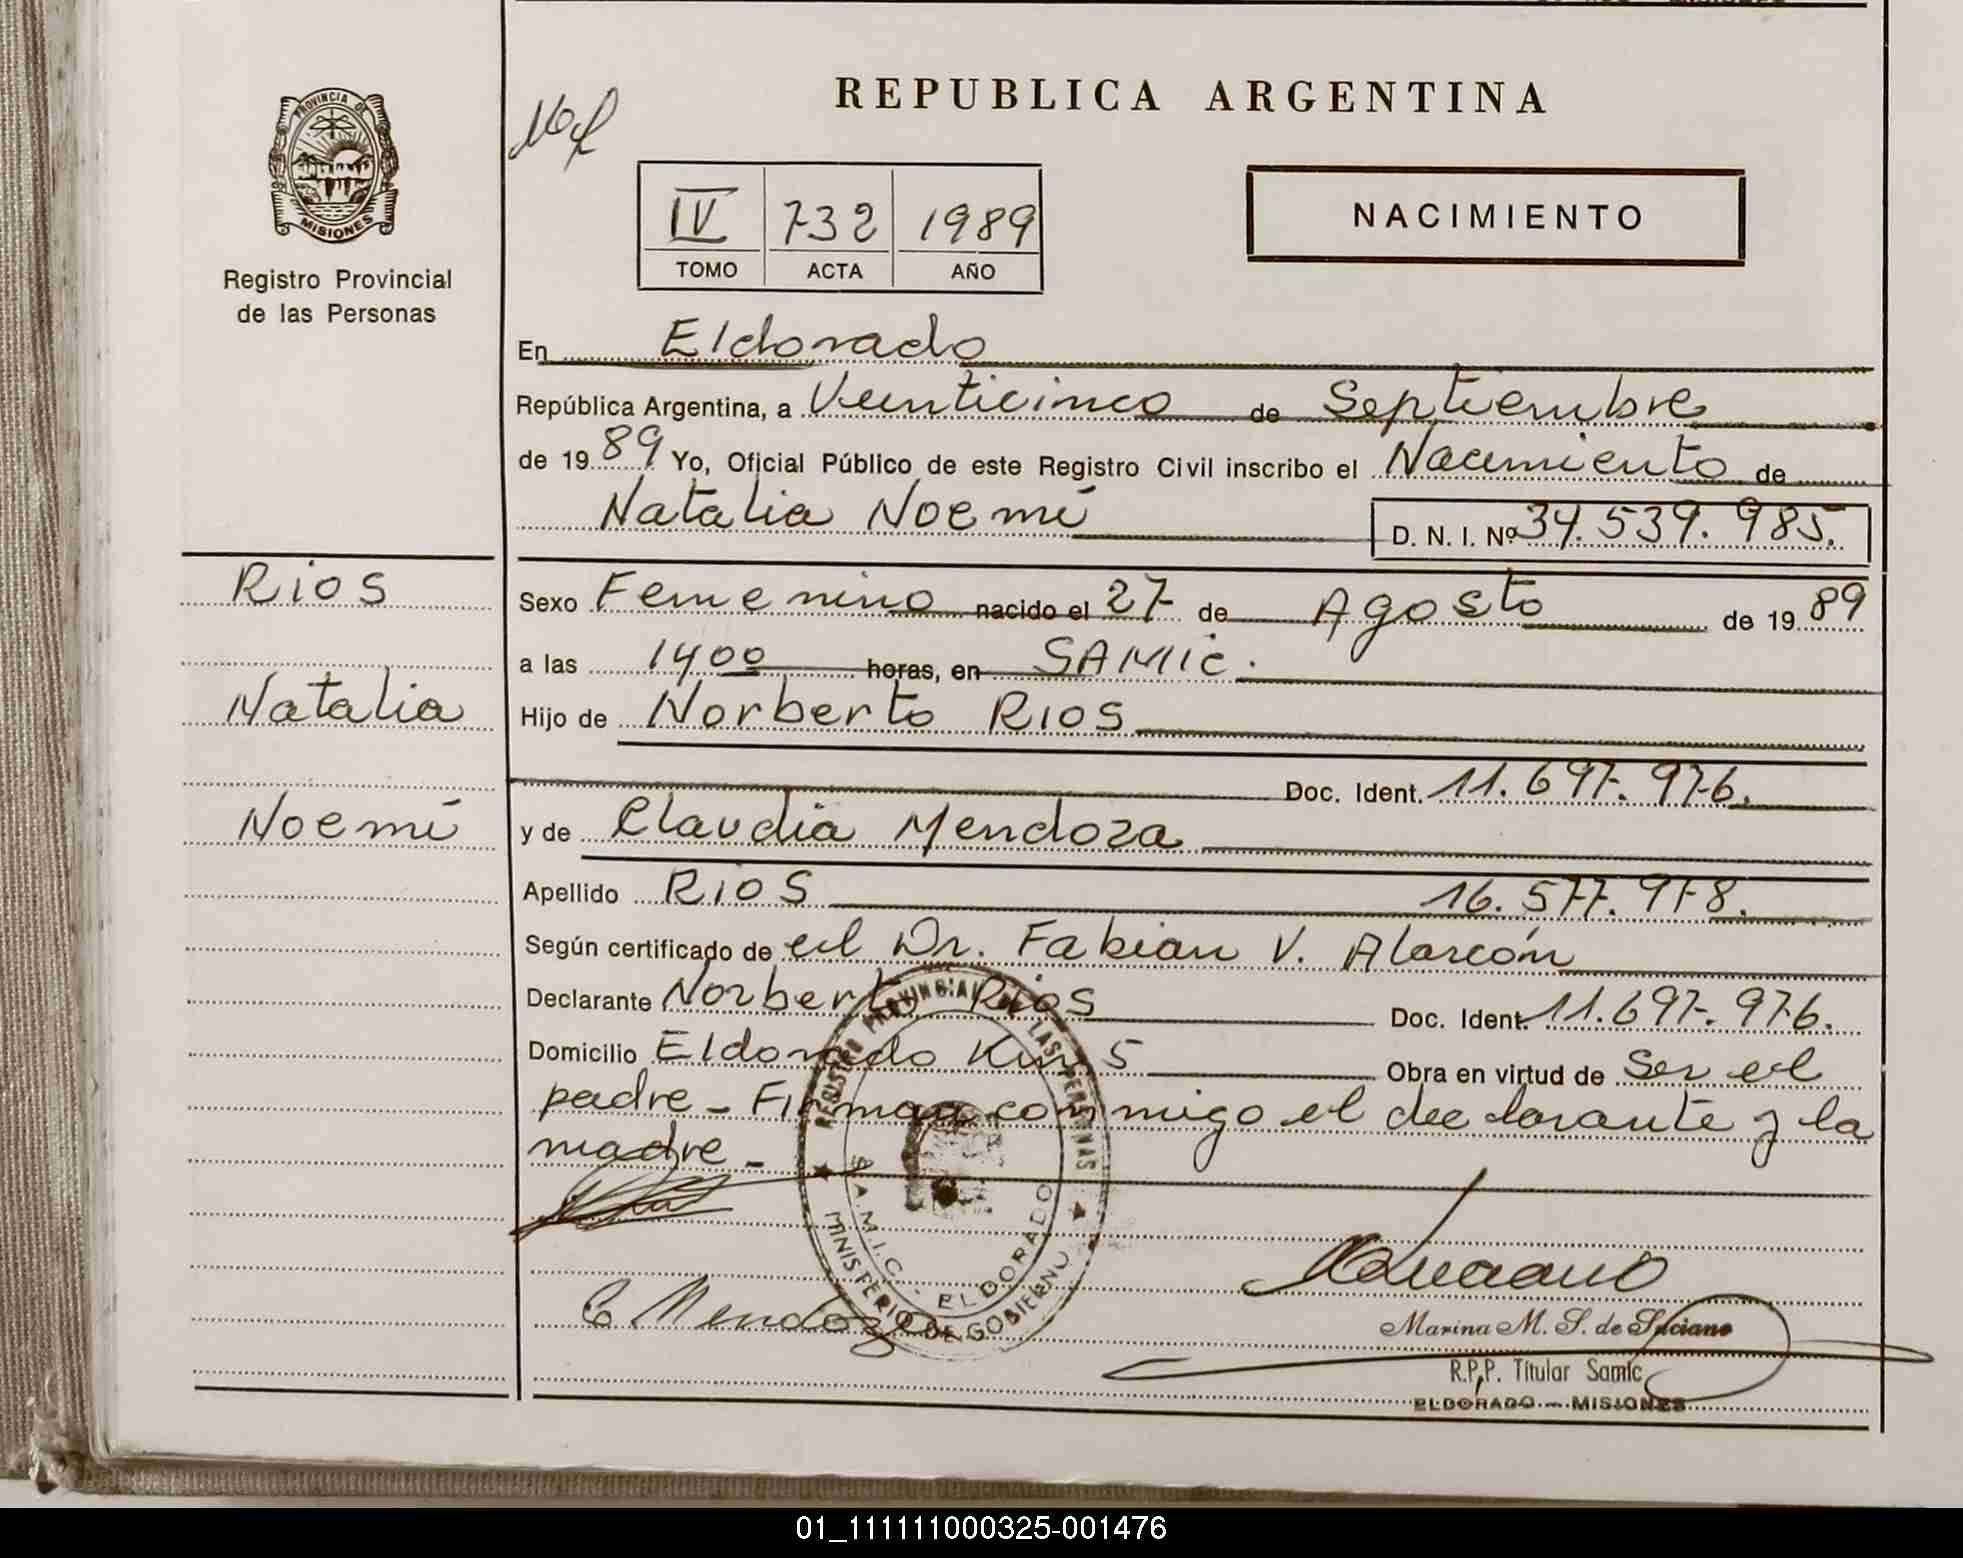 REPUBLICA ARGENTINA
PROVINCIA DE
MISIONES
Registro Provincial
de las Personas
IV 732 1989
TOMO ACTA AÑO
NACIMIENTO
En Eldorado
República Argentina, a Veinticinco de Septiembre
de 1989 Yo, Oficial Público de este Registro Civil inscribo el Nacimiento de
Natalia Noemí D. N. I. Nº 34.539.985.
Rios
Natalia
Noemí
Sexo Femenino nacido el 27 de Agosto de 1989
a las 1400 horas, en SAMIC.
Hijo de Norberto Rios
Doc. Ident. 11.697.976.
y de Claudia Mendoza
Apellido Rios 16.577.978.
Según certificado de el Dr. Fabian V. Alarcón
Declarante Norberto Rios Doc. Ident. 11.697.976.
Domicilio Eldorado Km 5 Obra en virtud de ser el
padre - Firman conmigo el declarante y la
madre -
REGISTRO PROVINCIAL DE LAS PERSONAS
S.A.M.I.C. - ELDORADO
MINISTERIO DE GOBIERNO
C Mendoza
Marina M. S. de Luciano
R.P.P. Titular Samic
ELDORADO - MISIONES
01_111111000325-001476